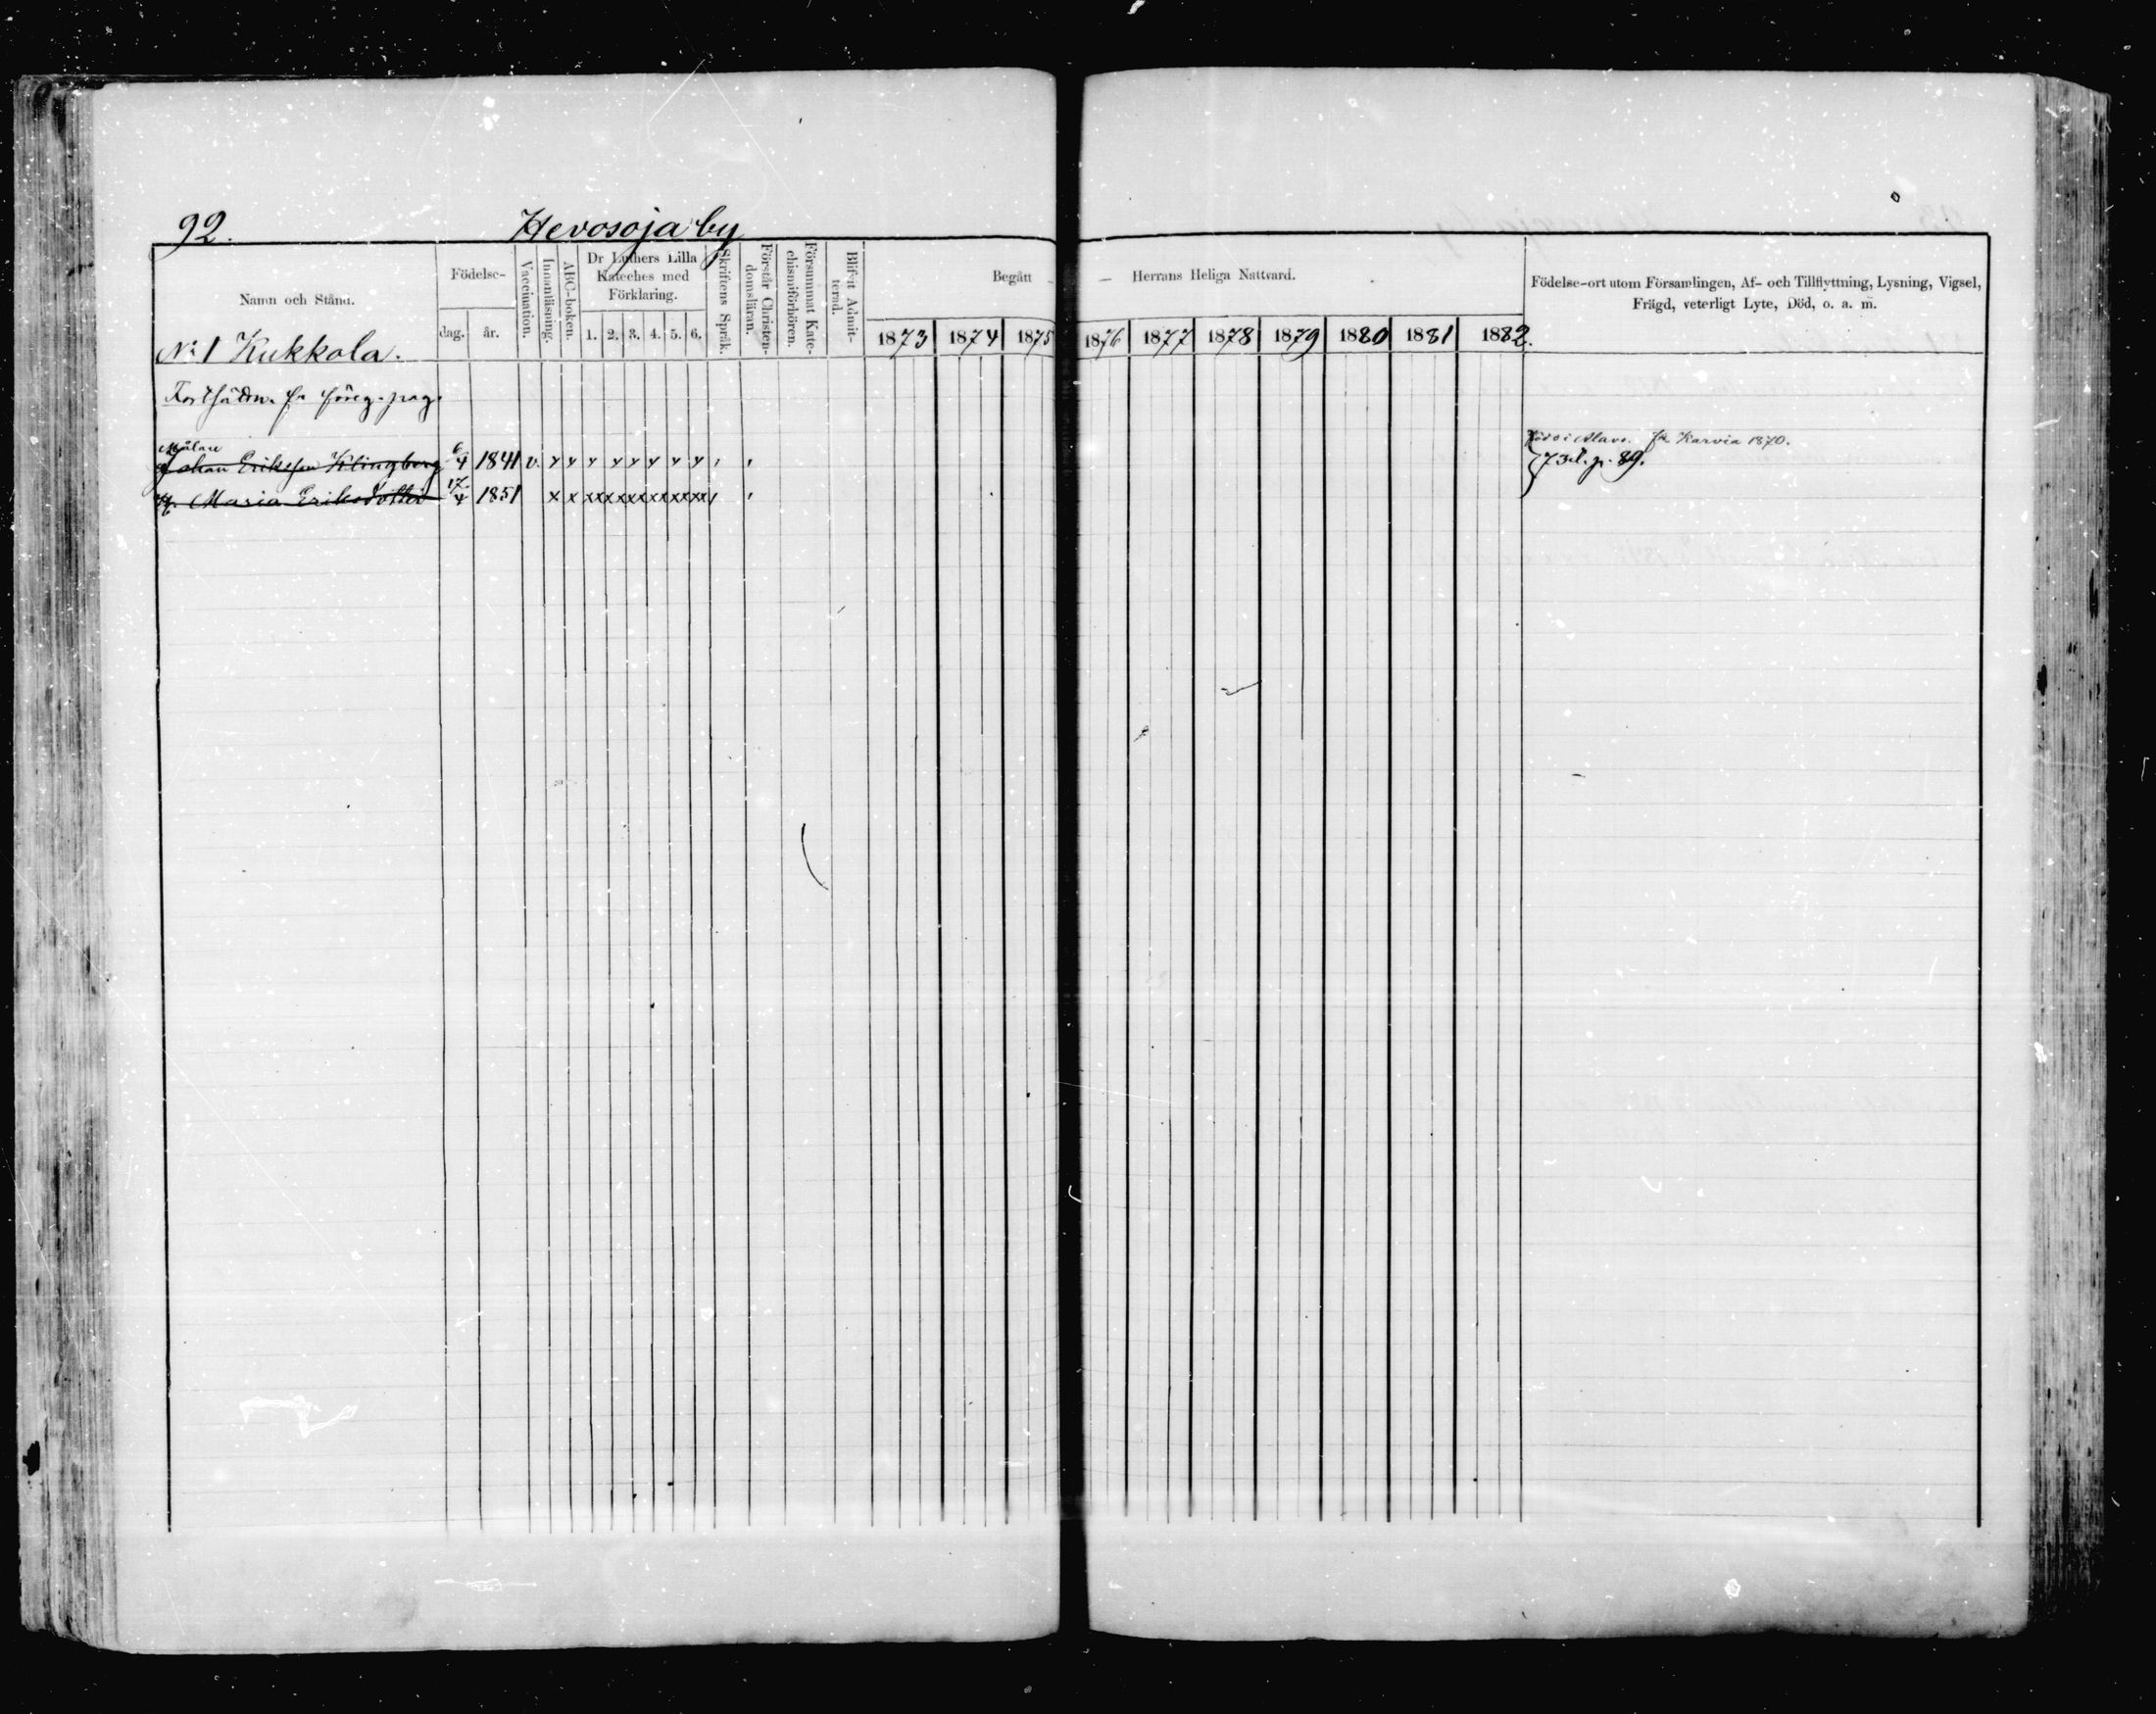 92. Hevosoja by
Namn och Stånd.
Födelse-
dag. år.
Vaccination.
Innanläsning.
ABC-boken.
Dr Luthers Lilla
Kateches med
Förklaring.
1. 2. 3. 4. 5. 6.
Skriftens Språk.
Förstår Christen-
domsläran.
Försummat Kate-
chismiförhören.
Blifvit Admit-
terad.
Begått — Herrans Heliga Nattvard.
1873 1874 1875 1876 1877 1878 1879 1880 1881 1882.
Födelse-ort utom Församlingen, Af- och Tillflyttning, Lysning, Vigsel,
Frägd, veterligt Lyte, Död, o. a. m.
No 1 Kukkola.
fr föreg. pag.
Målare
Johan Eriksson Klingberg 6/4 1841 v. x x x x x x x x
Född i Alavo. fr Karvia 1870.
73 d. p. 89.
H. Maria Eriksdotter 17/4 1851 x x xx xx xx xx xx xx